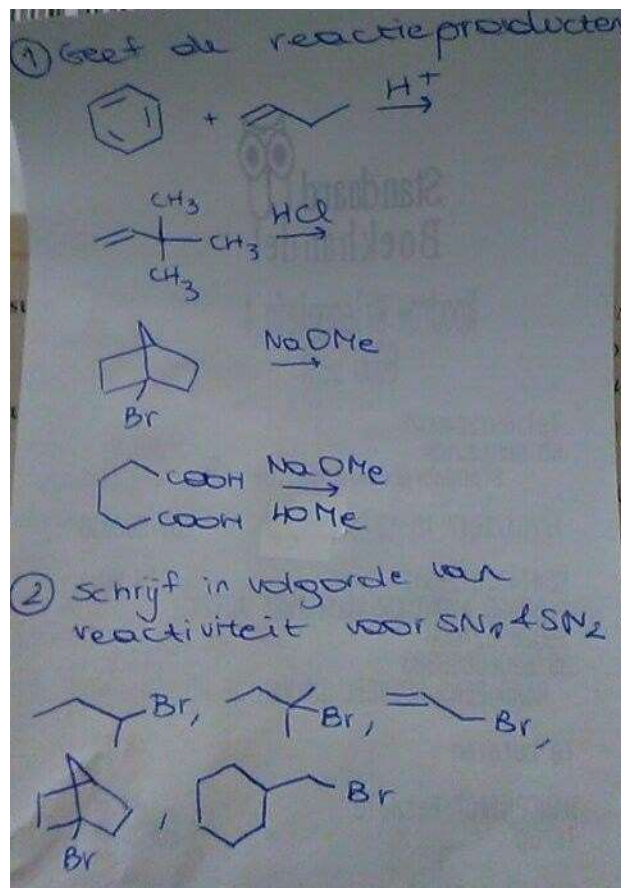 1 Geef de reactieproducten
+ H+
CH3
CH3 HCl
CH3
NaOMe
Br
COOH NaOMe
COOH HOMe
2 Schrijf in volgorde van
reactiviteit voor SN1 & SN2
Br, Br, Br,
, Br
Br